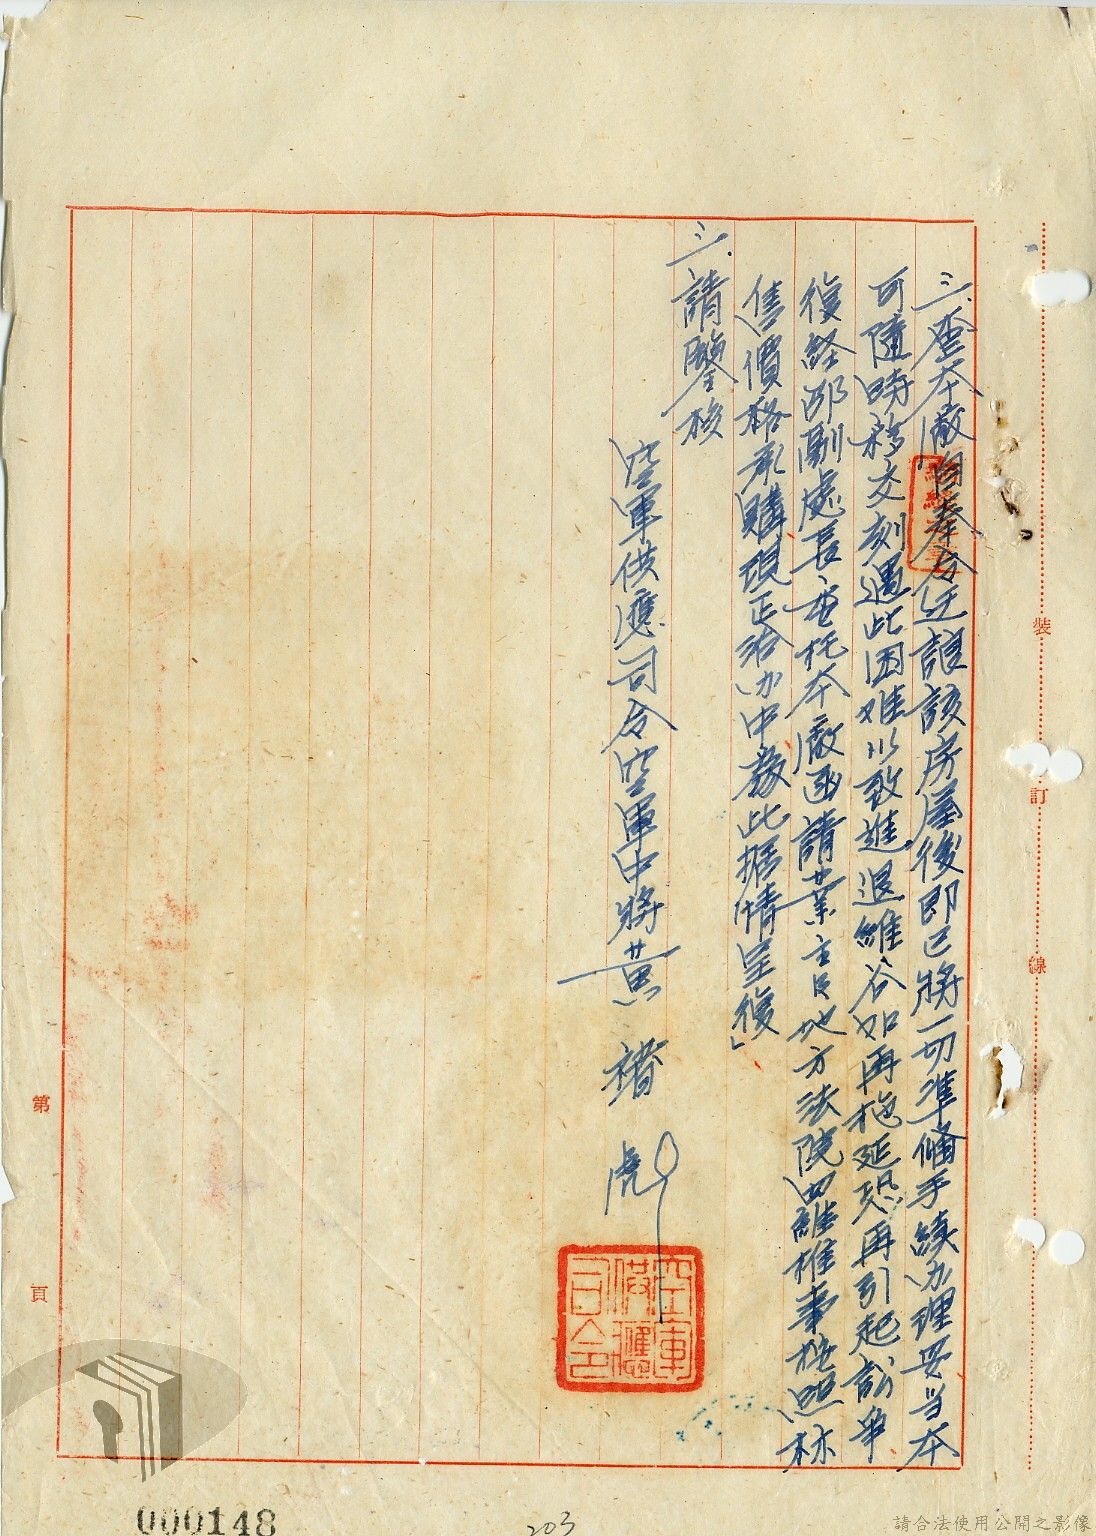 三.查本廠自奉令迁讓該房屋後即已將一切準備手續办理妥当本
可隨時移交刻遇此困难以致進退維谷如再拖延恐再引起訟爭
復經邵副處長委托本廠函請業主
地方法院
推事按照标
售價格承購現正洽办中義此据情呈復」
三.請鑒核
空軍供應司令空軍中將黃
虎
空軍供應司令
裝
訂
線
第
頁
000148
203
請合法使用公開之影像